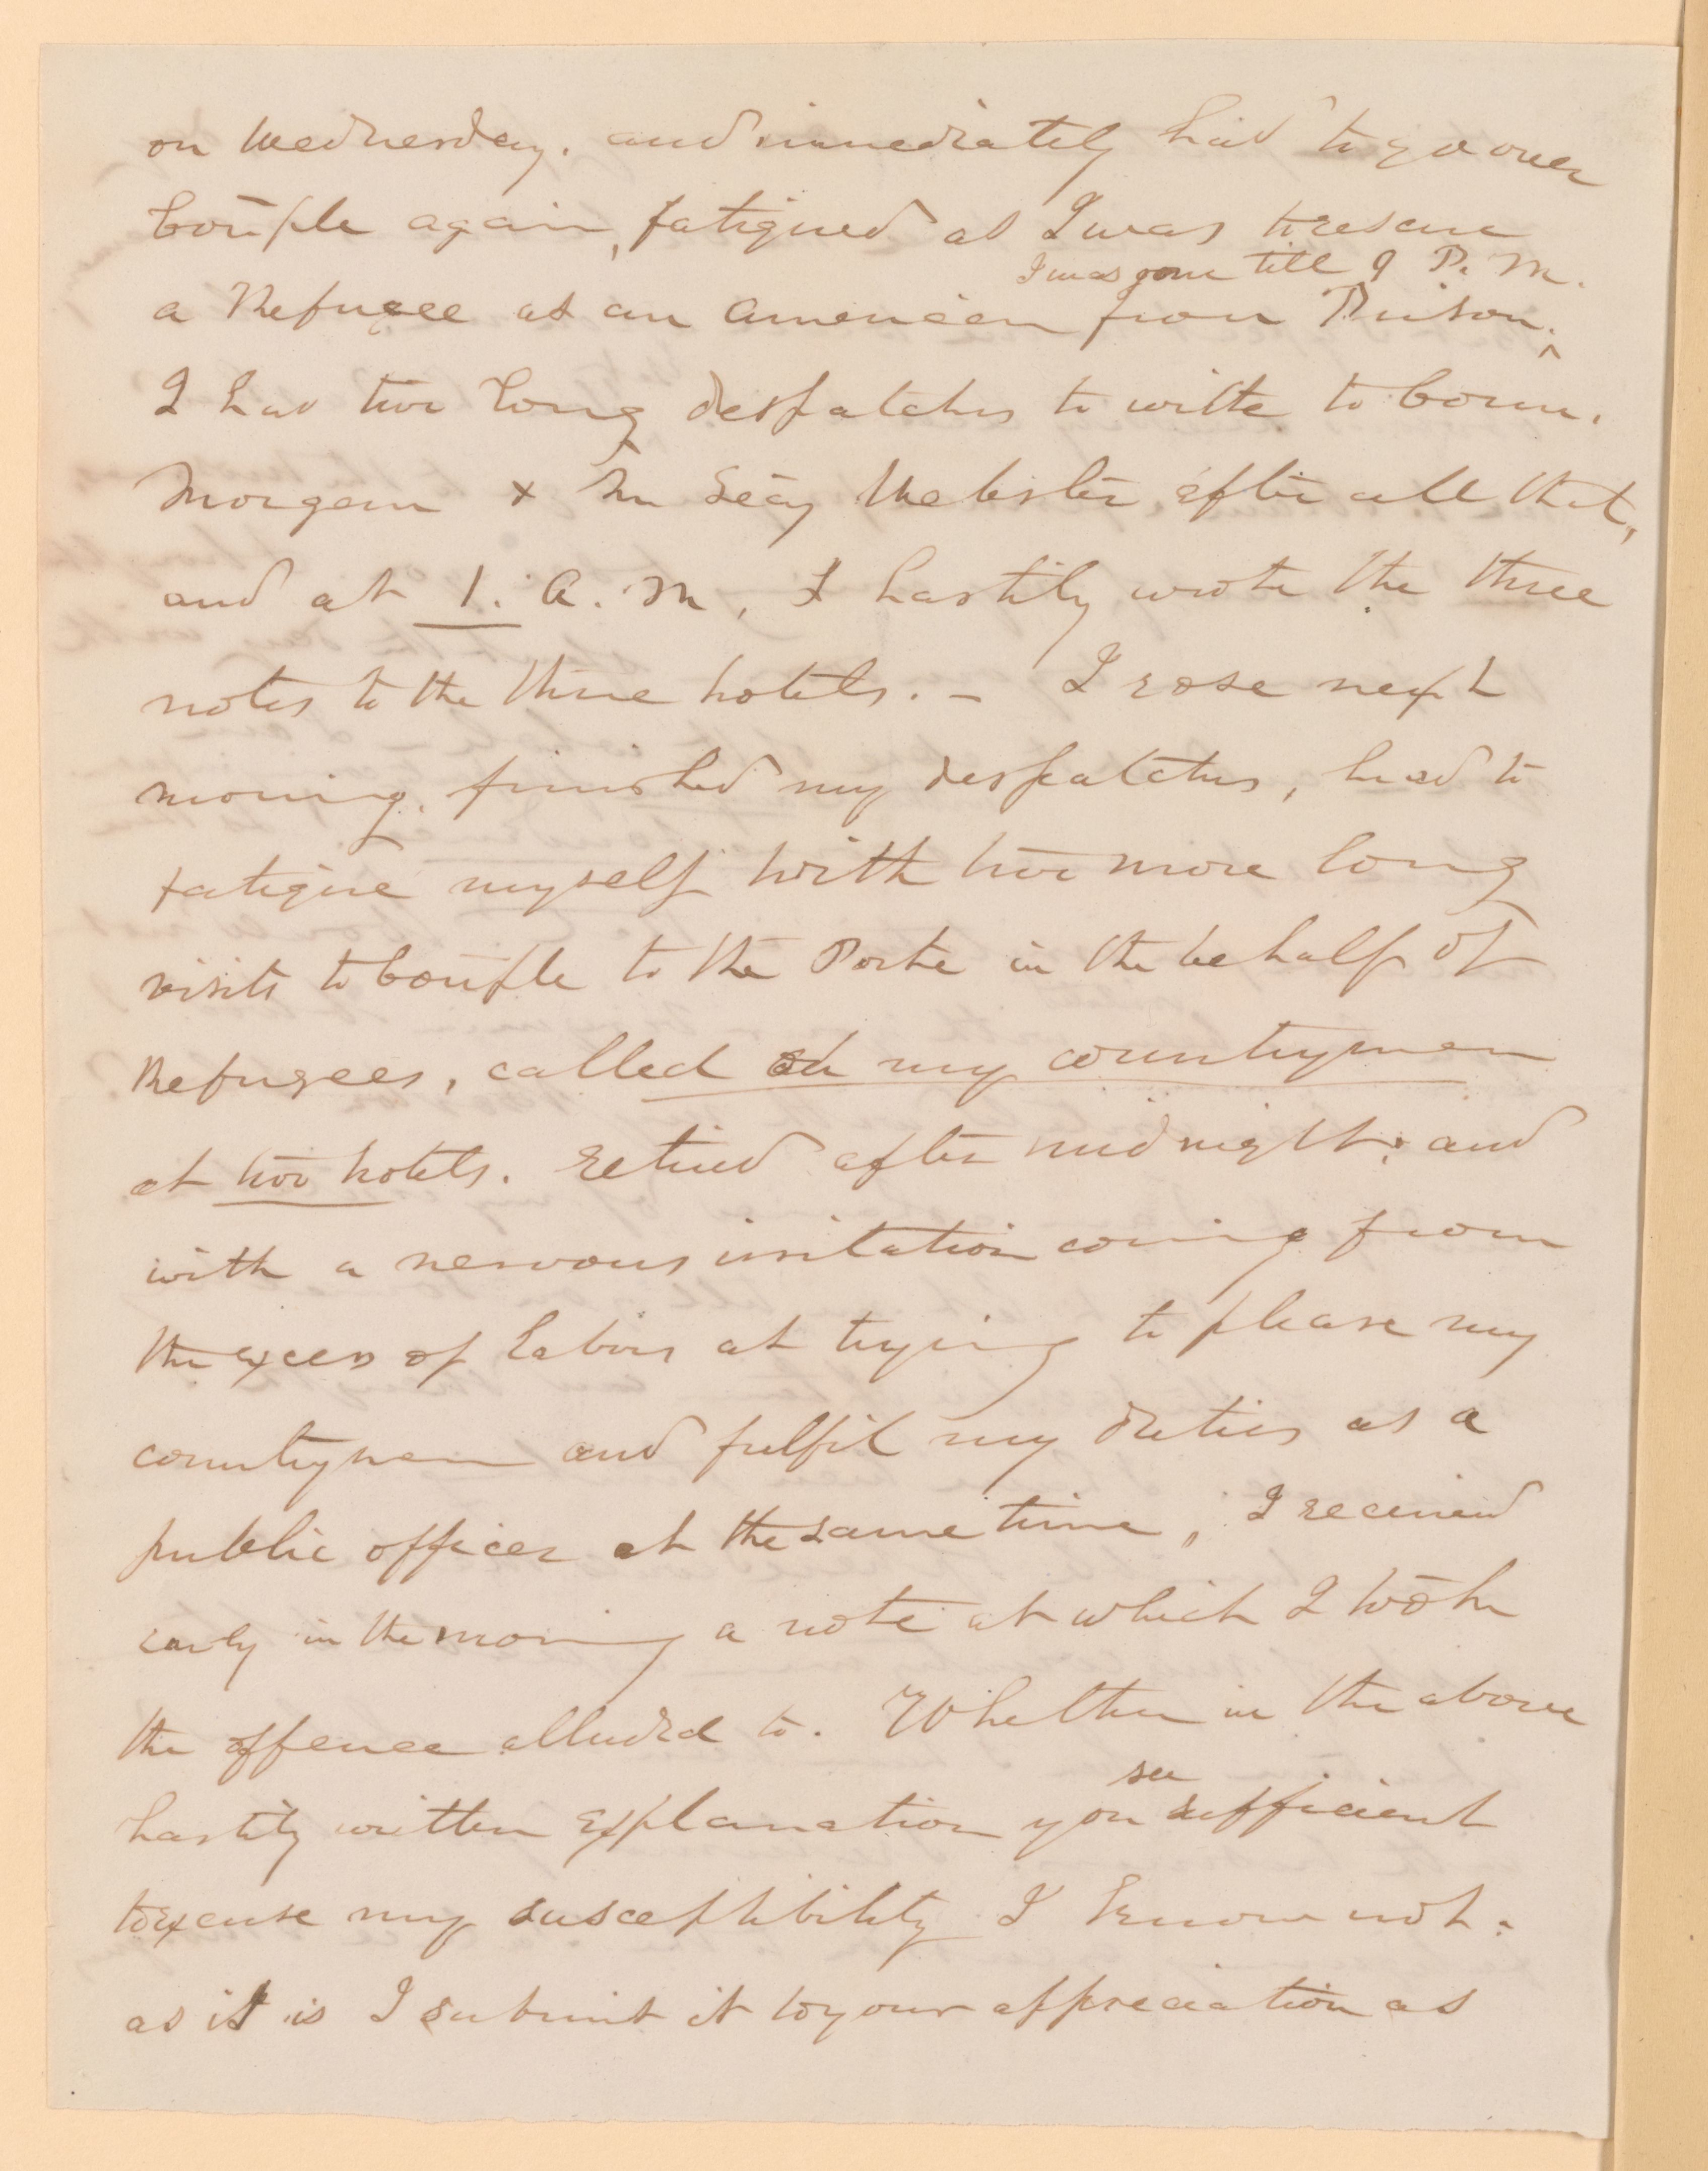 on Wednesday. and immediately had to go over
Conple again, fatigued as I was to rescue
I was gone till 9 P. M.
a Refugee as an American from Prison.
I had two long despatches to write to Com.
Morgan & Mr Secy Webster after all that,
and at 1. A. M, I hastily wrote the three
notes to the three hotels. - I rose next
morning. finished my despatches, had to
fatigue myself with two more long
visits to Conple to the Porte in the behalf of
Refugees, called on my countrymen
at two hotels. retired after midnight; and
with a nervous irritation coming from
the excess of labors at trying to please my
countrymen and fulfil my duties as a
public officer at the same time, I received
early in the morning a note at which I took
the offence alluded to. Whether in the above
see
hastily written explanation you sufficient
to excuse my susceptibility I know not.
as it is I submit it to your appreciation as